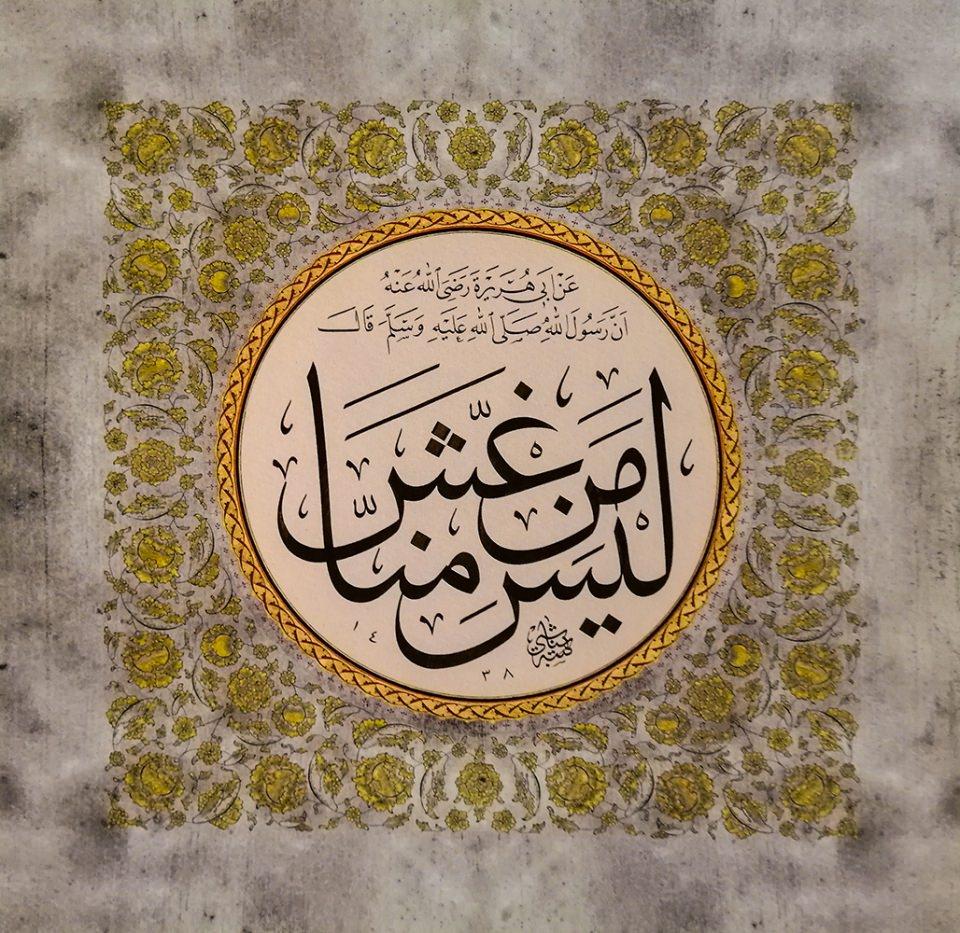 عَنْ اَبِي هُرَيْرَةَ رَضِيَ اللهُ عَنْهُ
اَنَّ رَسُولَ اللهِ صَلَّى اللهُ عَلَيْهِ وَسَلَّمَ قَالَ
لَيْسَ مِنَّا مَنْ غَشَّ
كتبه
١٤٣٨